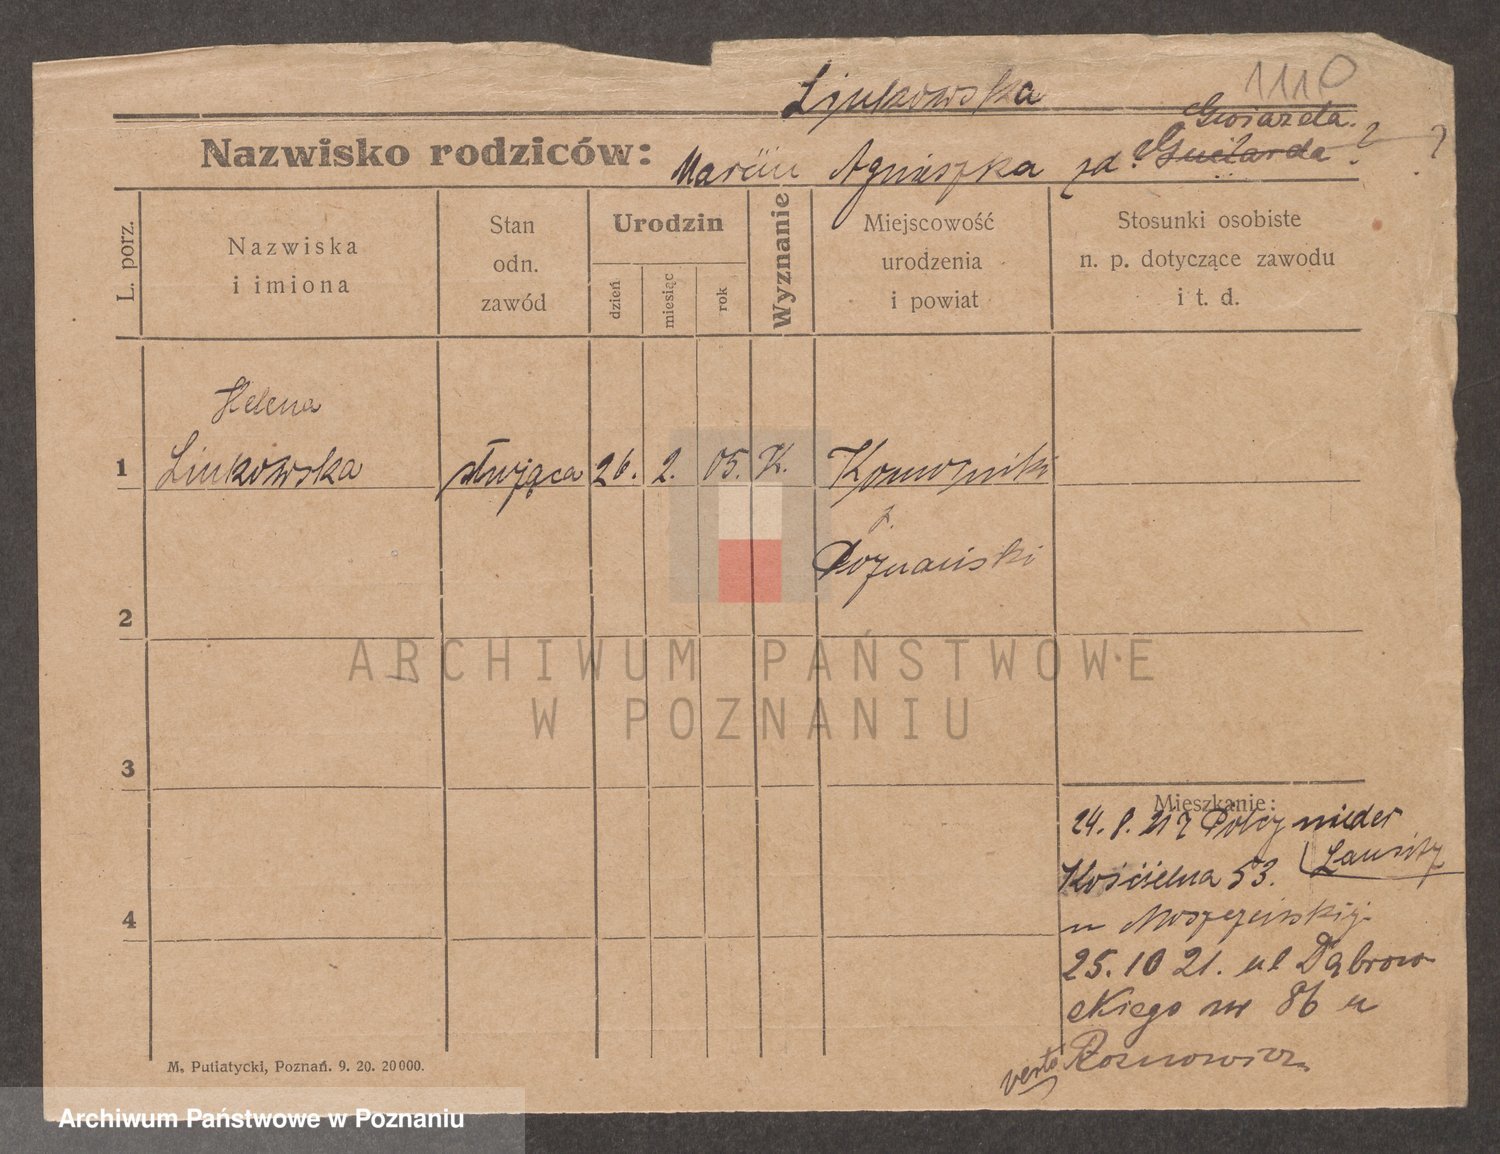 1110
Linkowska
Gwiazda.
Nazwisko rodziców: Marcin Agnieszka zd. Gueżarda ? ?
L. porz.
Nazwiska
i imiona
Stan
odn.
zawód
Urodzin
dzień
miesiąc
rok
Wyznanie
Miejscowość
urodzenia
i powiat
Stosunki osobiste
n. p. dotyczące zawodu
i t. d.
Helena
1 Linkowska służąca 26. 2. 05. K. Komorniki
p.
Poznański
2
3
4
Mieszkanie:
24. 8. 21 z nieder
Lausitz
Kościelna 53.
u
25. 10 21. ul Dąbrow
skiego nr 86 u
verte
M. Putiatycki, Poznań. 9. 20. 20000.
ARCHIWUM PAŃSTWOWE
W POZNANIU
Archiwum Państwowe w Poznaniu